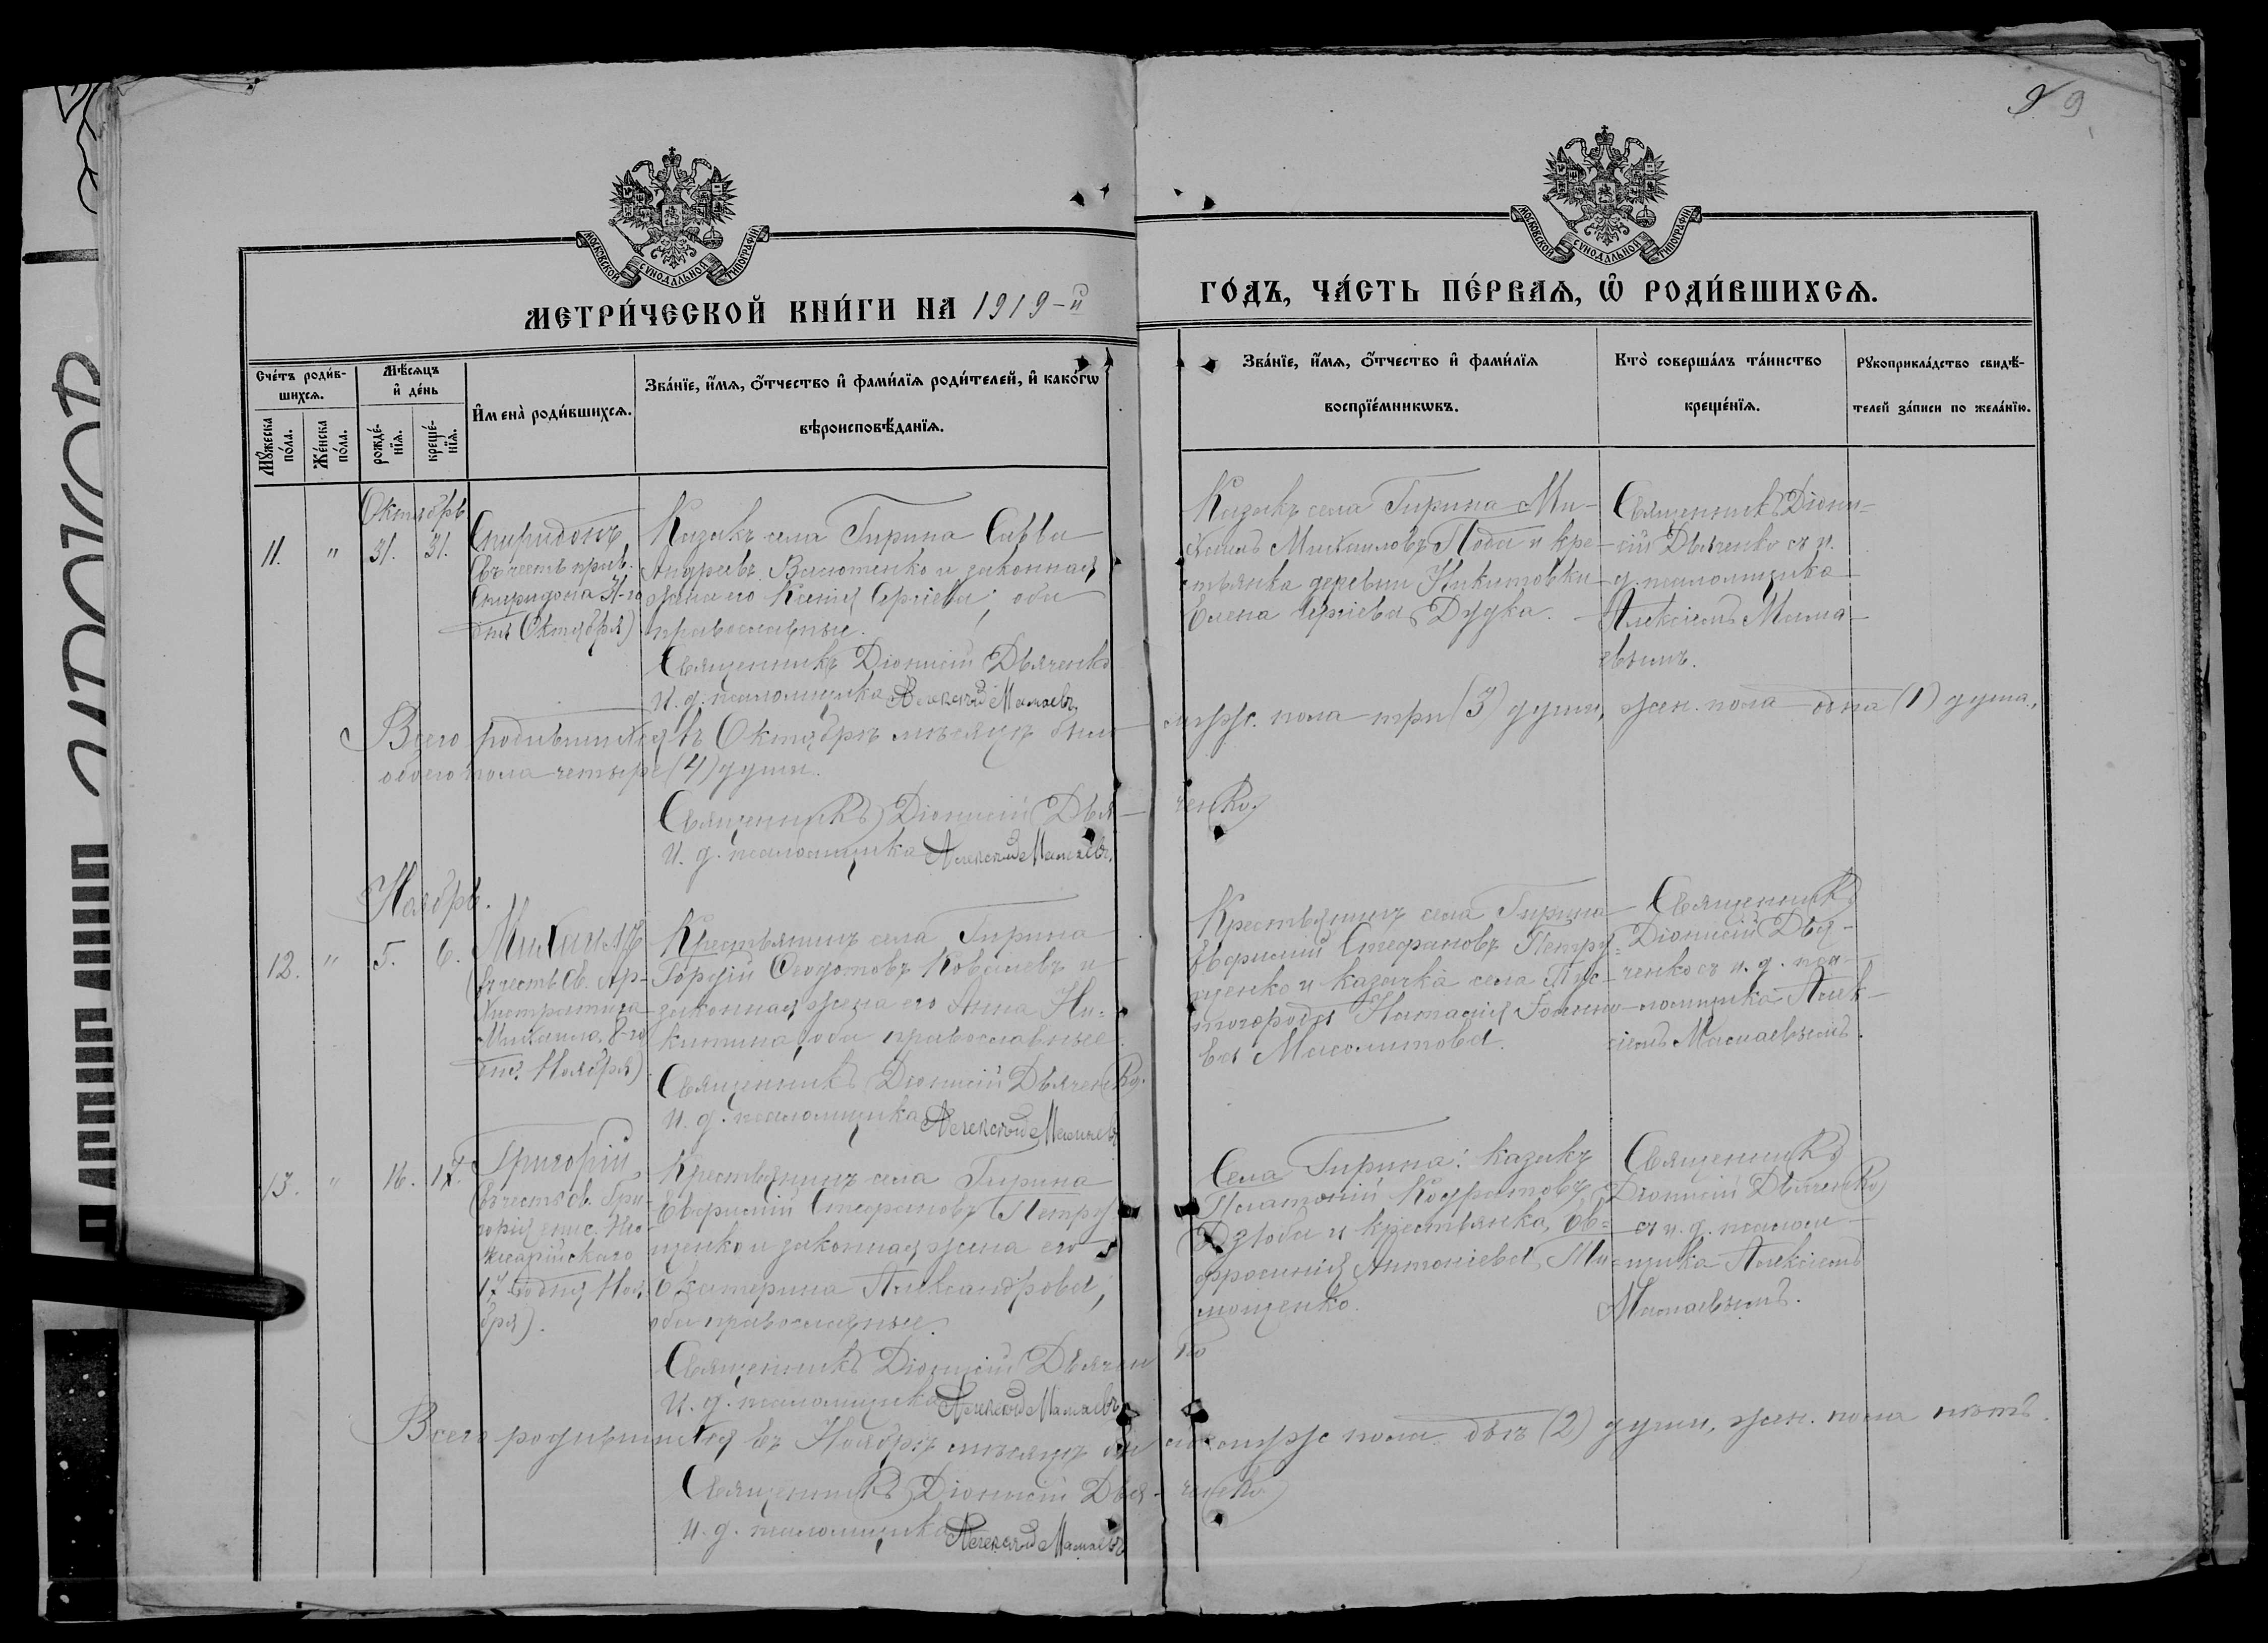 9 9
МОСКОВСКОЙ СУНОДАЛЬНОЙ ТИПОГРАФІИ
МОСКОВСКОЙ СУНОДАЛЬНОЙ ТИПОГРАФІИ
МЕТРИ́ЧЕСКОЙ КНИ́ГИ НА 1919-й
ГО́ДЪ, ЧА́СТЬ ПЕ́РВАѦ, Ѡ҆ РОДИ́ВШИХСѦ.
Сче́тъ роди́в-
шихсѧ.
Мꙋ́жеска по́ла.
Же́нска по́ла.
Мѣ́сѧцъ и҆ де́нь
рожде́-
нїѧ.
креще́-
нїѧ.
И҆мена̀ роди́вшихсѧ.
Зва́нїе, и҆́мѧ, ѻ҆́тчество и҆ фами́лїѧ роди́телей, и҆ како́гѡ
вѣроисповѣ́данїѧ.
Зва́нїе, и҆́мѧ, ѻ҆́тчество и҆ фами́лїѧ
воспрїе́мникѡвъ.
Кто̀ соверша́лъ та́инство
креще́нїѧ.
Рꙋкоприкла́дство свидѣ́-
телей за́писи по жела́нїю.
Октябрь
11. " 31. 31.
Спиридонъ
(въ честь преп.
Спиридона 31-го
дня Октября)
Казакъ села Гирина Савва
Андреевъ Васютенко и законная
жена его Ксенія Сергіева, оба
православные.
Священникъ Діонисій Дьяченко
И. д. псаломщика Алексѣй Мамаевъ
Казакъ села Гирина Ми-
хаилъ Михаиловъ Поды и кре-
стьянка деревни Никитовки
Елена Сергіева Дудка.
Священникъ Діони-
сій Дьяченко съ и.
д. псаломщика
Алексіемъ Мама-
евымъ.
Всего родившихся въ Октябрѣ мѣсяцѣ было муж. пола три (3) души, жен. пола одна (1) душа,
обоего пола четыре (4) души.
Священникъ Діонисій Дьяченко
И. д. псаломщика Алексѣй Мамаевъ
Ноябрь.
12. " 5. 6.
Михаилъ
(въ честь Св. Ар-
хистратига
Михаила, 8-го
дня Ноября)
Крестьянинъ села Гирина
Гордій Ѳеодотовъ Ковалевъ и
законная жена его Анна Ни-
китина, оба православные.
Священникъ Діонисій Дьяченко.
И. д. псаломщика Алексѣй Мамаевъ
Крестьянинъ села Гирина
Евфимій Стефановъ Петру-
щенко и казачка села Пус-
тогорода Наталія Іоанно-
ва Масолитова.
Священникъ
Діонисій Дья-
ченко съ и. д. пса-
ломщика Алек-
сіемъ Мамаевымъ.
13. " 16. 17.
Григорій
(въ честь св. Гри-
горія епис. Нео-
кесарійскаго
17-го дня Ноя-
бря).
Крестьянинъ села Гирина
Евфимій Стефановъ Петру-
щенко и законная жена его
Екатерина Александрова,
оба православные.
Священникъ Діонисій Дьяченко
И. д. псаломщика Алексѣй Мамаевъ
Села Гирина: казакъ
Кодратовъ
Дзюба и крестьянка Ев-
фросинія Антоніева Ти-
мощенко.
Священникъ
Діонисій Дьяченко
съ и. д. псалом-
щика Алексіемъ
Мамаевымъ.
Всего родившихся въ Ноябрѣ мѣсяцѣ было муж. пола двѣ (2) души, жен. пола нѣтъ.
Священникъ Діонисій Дьяченко
И. д. псаломщика Алексѣй Мамаевъ